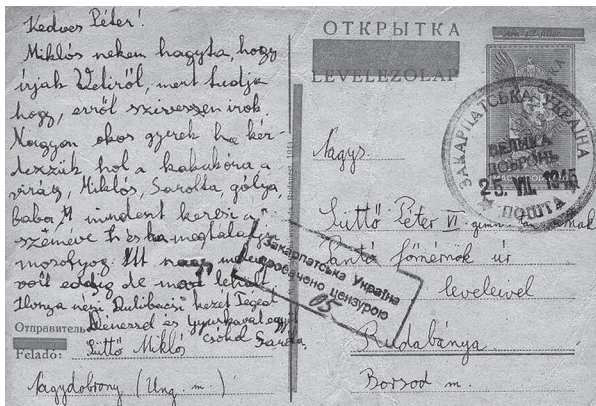 Kedves Péter!
Miklós nekem hagyta, hogy
írjak Vetiről, mert tudja
hogy, erről szívessen irok.
Nagyon okos gyerek ha kér-
dezzük hol a kakukóra a
virág, Miklós, Sarolta, gólya,
baba mindent keresi a
szemével és ha megtalálja
mosolyog. Itt nagy meleg
volt eddig de most lehült
Ilonya néni Dulibácsi kezet
Dénessel és Gyurkával együtt
csókol Sarolta
Отправитель
Feladó:
Süttő Miklós
Nagydobrony (Ung. m.)
ОТКРЫТКА
LEVELEZŐLAP
ЗАКАРПАТСЬКА УКРАЇНА
ВЕЛИКА
ДОБРОНЬ
25. VII. 1945
ПОШТА
Nagys.
Süttő Péter VI gimn. tan.
Jantó főmérnök úr
leveleivel
Закарпатська Україна
пробачено цензурою
05
Rudabánya
Borsod m.